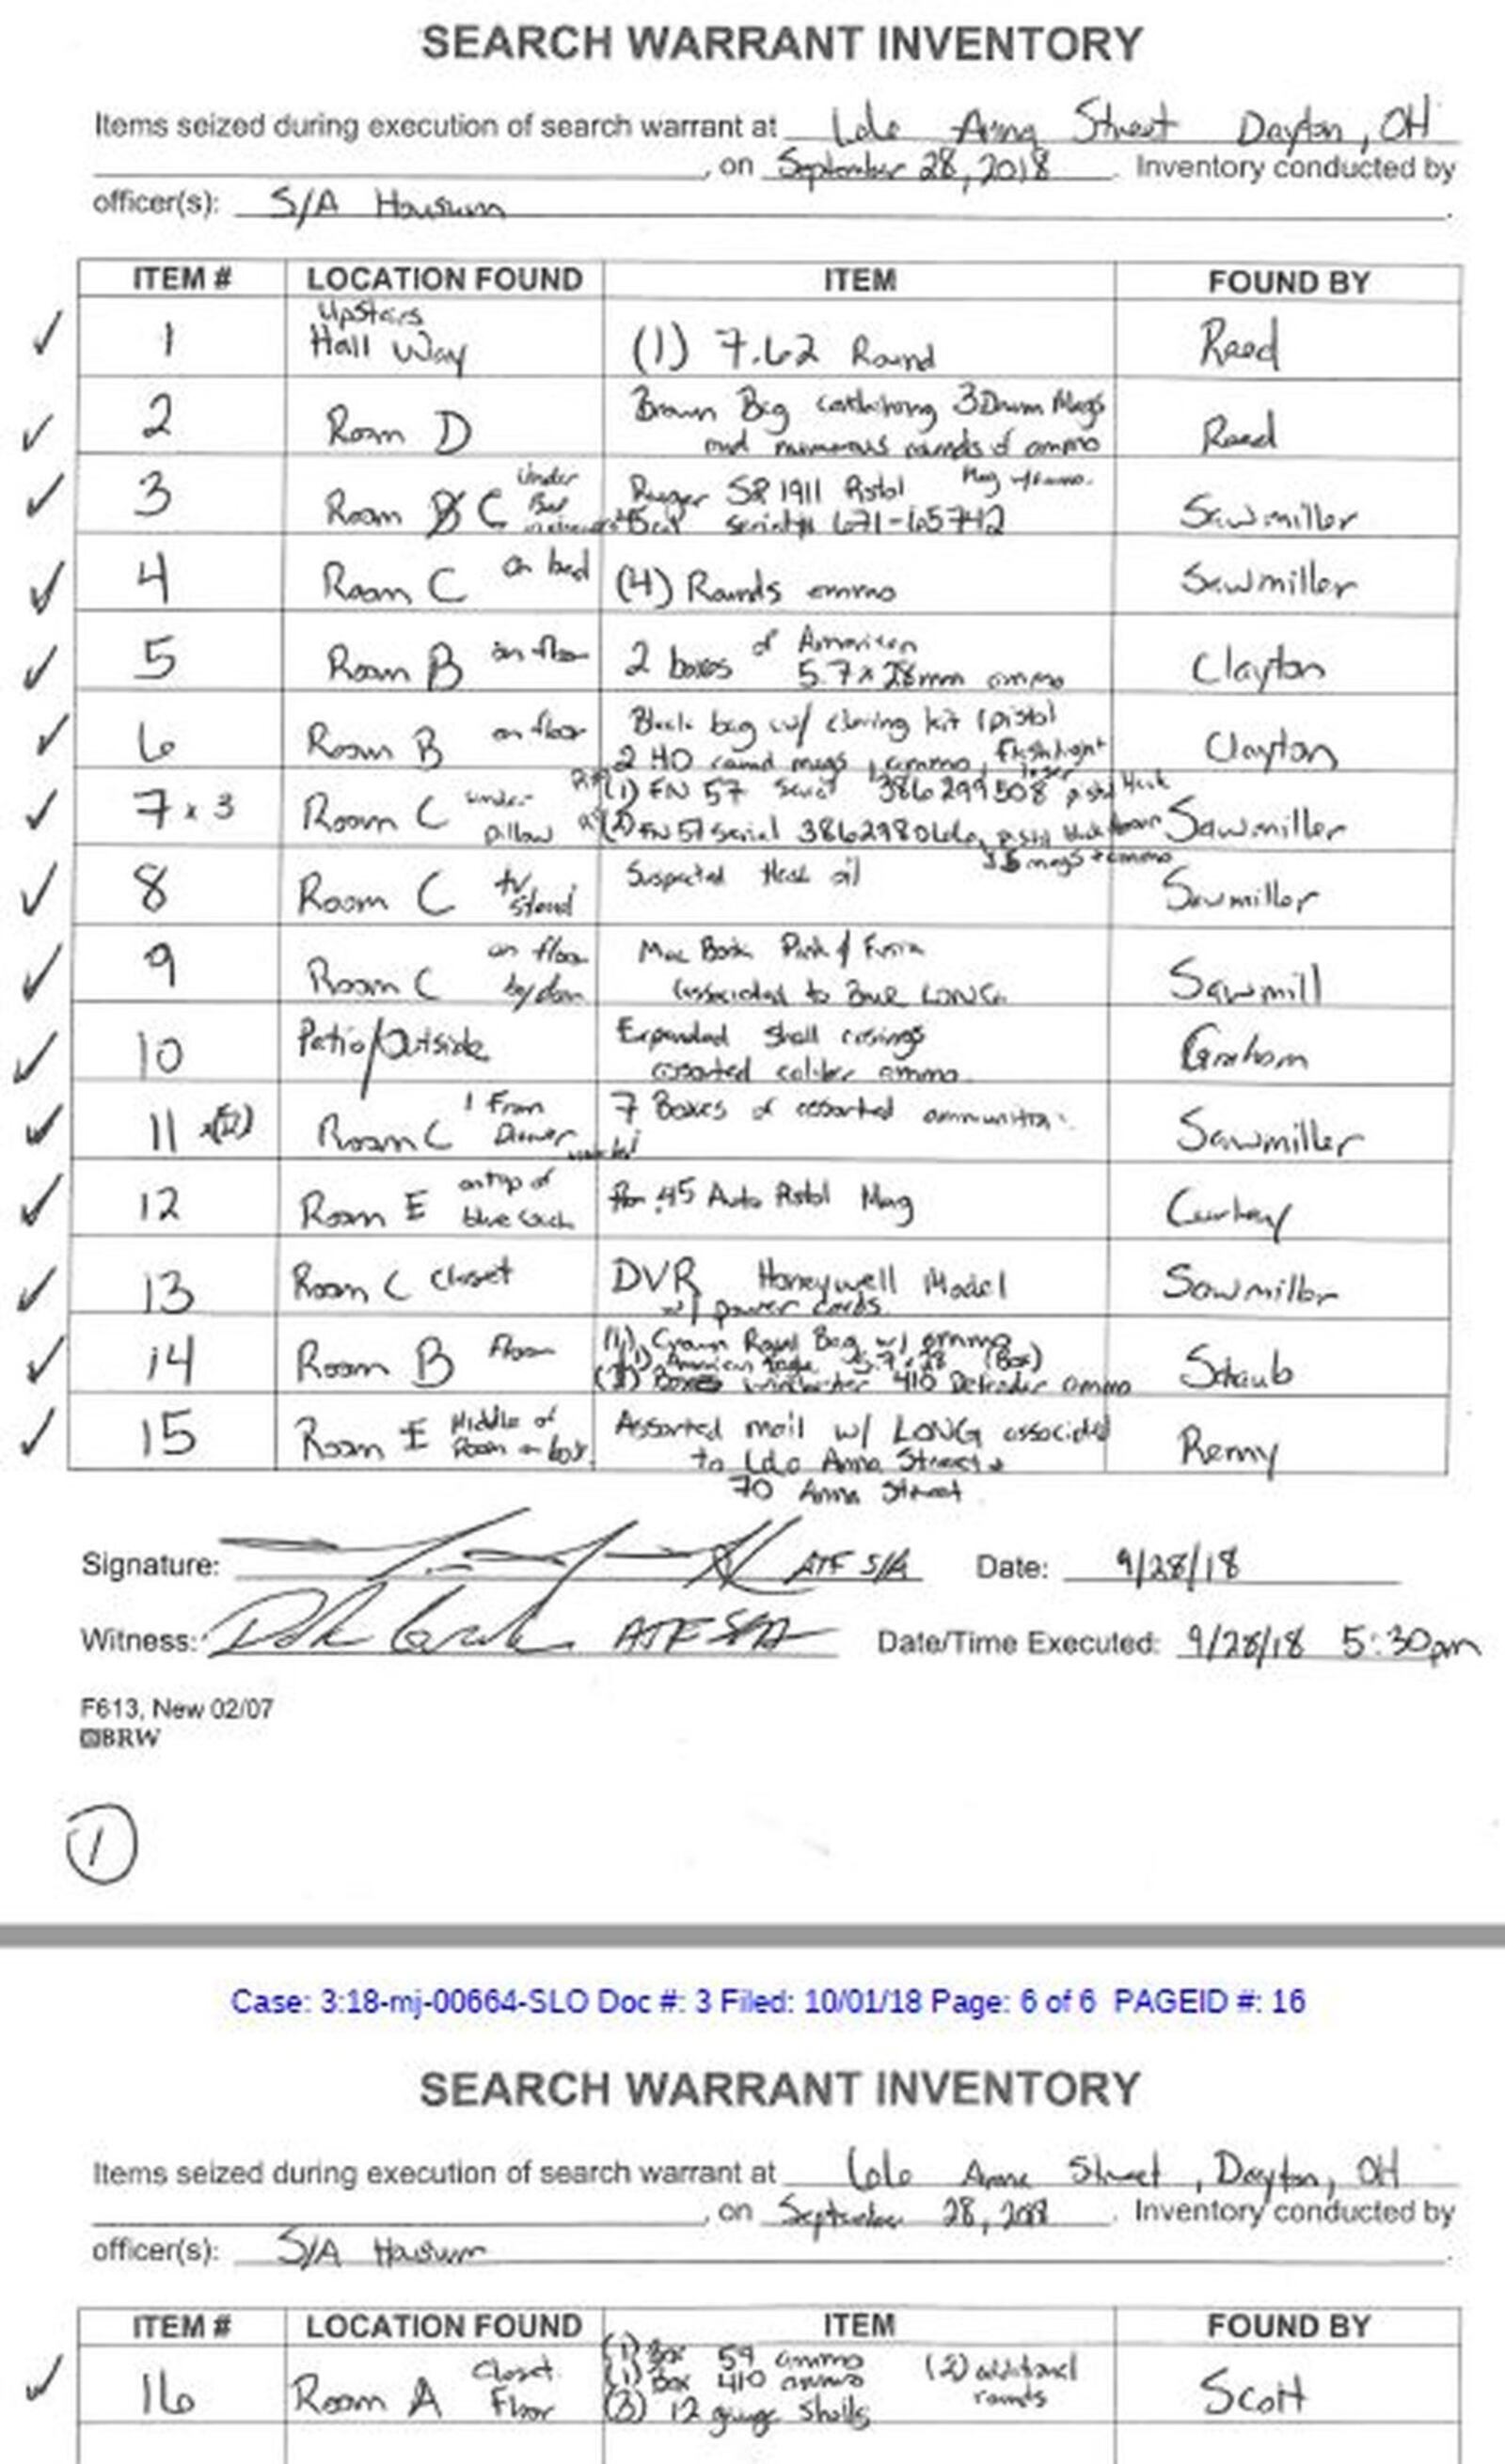 SEARCH WARRANT INVENTORY
Items seized during execution of search warrant at 66 Anna Street Dayton, OH
, on September 28, 2018. Inventory conducted by
officer(s): S/A
ITEM # LOCATION FOUND ITEM FOUND BY
1 Upstairs Hall Way (1) 7.62 Round Reed
2 Room D Brown Bag containing 3 Drum Mags
and numerous rounds of ammo Reed
3 Room C Under Bed Ruger SR 1911 Pistol Mag w/ammo.
45cal serial# 671-65742 Sawmiller
4 Room C on bed (4) Rounds ammo Sawmiller
5 Room B on floor 2 boxes of American
5.7x28mm ammo Clayton
6 Room B on floor Black bag w/ kit (pistol
2 mags, ammo, flashlight Clayton
7 x 3 Room C under pillow (1) FN 57 serial 386299508 pistol black
FN 57 serial pistol
mags + ammo Sawmiller
8 Room C tv stand Suspected oil Sawmiller
9 Room C on floor by door Mac Book
associated to LONG Sawmill
10 Patio/Outside Expended Shell casings
assorted caliber ammo Graham
11 Room C From Drawer 7 Boxes of assorted ammunition Sawmiller
12 Room E on top of blue couch .45 Auto Pistol Mag
13 Room C closet DVR Honeywell Model
w/ power cords Sawmiller
14 Room B Floor (1) Crown Royal Bag w/ ammo
(1) American 5.7x28 (Box)
Boxes Winchester 410 Defender ammo Staub
15 Room E Middle of Room on box Assorted mail w/ LONG associated
to 66 Anna Street &
70 Anna Street Remy
Signature: ATF S/A Date: 9/28/18
Witness: ATF S/A Date/Time Executed: 9/28/18 5:30pm
F613, New 02/07
BRW
1
Case: 3:18-mj-00664-SLO Doc #: 3 Filed: 10/01/18 Page: 6 of 6 PAGEID #: 16
SEARCH WARRANT INVENTORY
Items seized during execution of search warrant at 66 Anna Street, Dayton, OH
, on September 28, 2018. Inventory conducted by
officer(s): S/A
ITEM # LOCATION FOUND ITEM FOUND BY
16 Room A Closet Floor (1) Box ammo (2) additional
(1) Box 410 ammo rounds
(3) 12 gauge Shells Scott